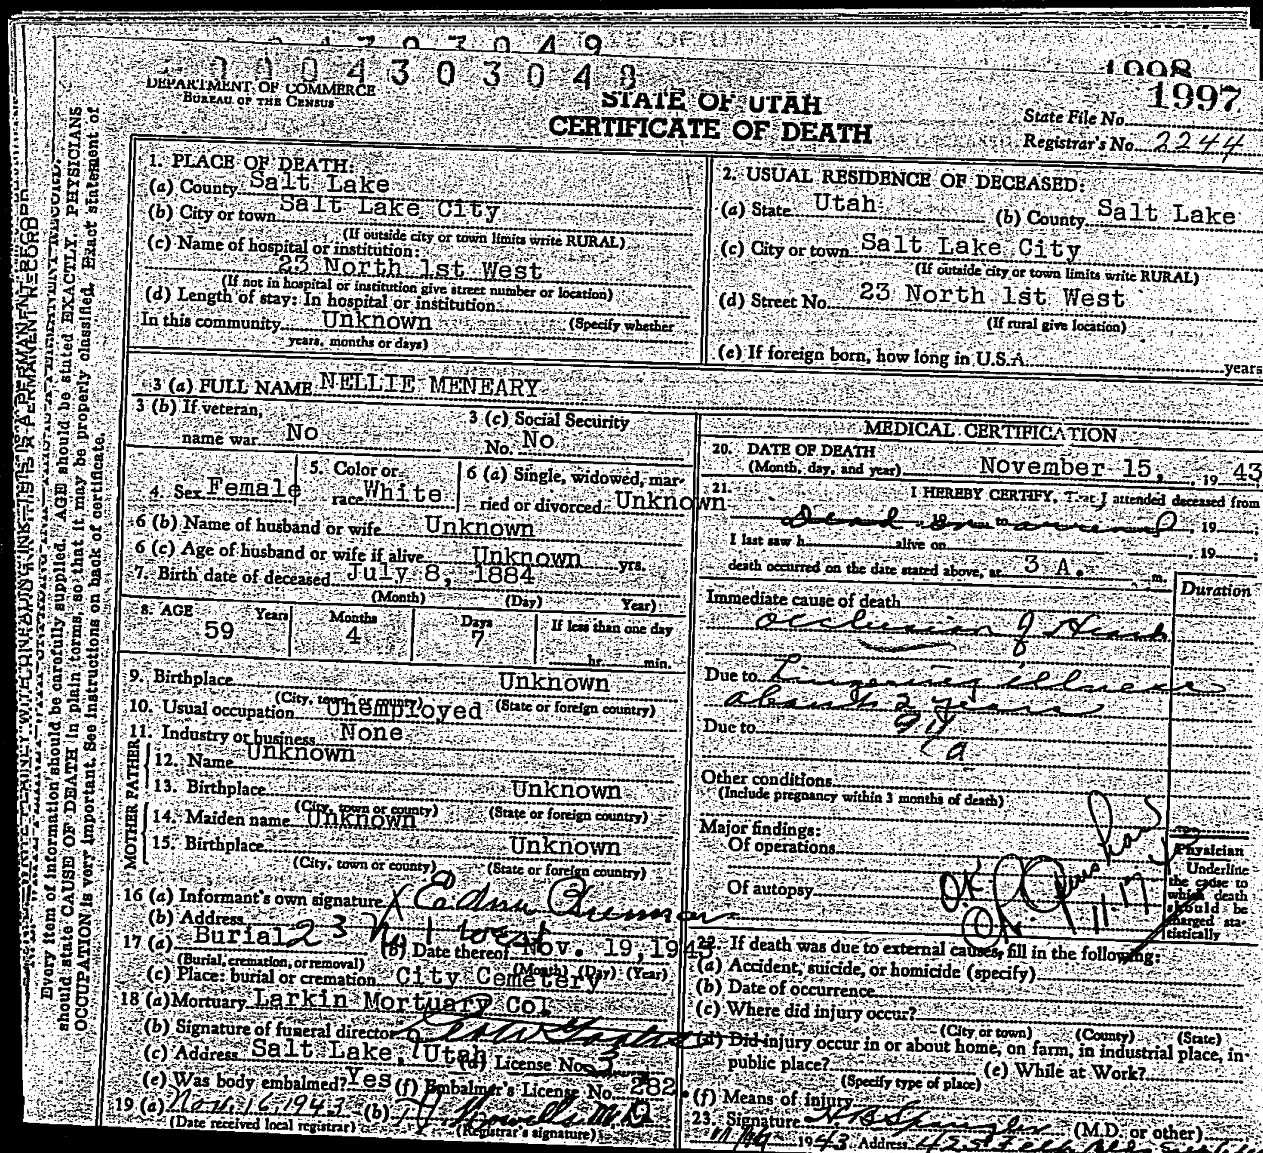 0004303048
1998
1997
DEPARTMENT OF COMMERCE
BUREAU OF THE CENSUS
STATE OF UTAH
CERTIFICATE OF DEATH
State File No.
Registrar's No. 2244
Every item of information should be carefully supplied. AGE should be stated EXACTLY. PHYSICIANS
should state CAUSE OF DEATH in plain terms, so that it may be properly classified. Exact statement of
OCCUPATION is very important. See instructions on back of certificate.
1. PLACE OF DEATH:
(a) County Salt Lake
(b) City or town Salt Lake City
(If outside city or town limits write RURAL)
(c) Name of hospital or institution:
23 North 1st West
(If not in hospital or institution give street number or location)
(d) Length of stay: In hospital or institution
In this community Unknown (Specify whether
years, months or days)
2. USUAL RESIDENCE OF DECEASED:
(a) State Utah (b) County Salt Lake
(c) City or town Salt Lake City
(If outside city or town limits write RURAL)
(d) Street No. 23 North 1st West
(If rural give location)
(e) If foreign born, how long in U.S.A. years
3 (a) FULL NAME NELLIE MENEARY
3 (b) If veteran,
name war No
3 (c) Social Security
No. No
4. Sex Female
5. Color or
race White
6 (a) Single, widowed, mar-
ried or divorced Unknown
6 (b) Name of husband or wife Unknown
6 (c) Age of husband or wife if alive Unknown yrs.
7. Birth date of deceased July 8, 1884
(Month) (Day) Year)
8. AGE Years Months Days If less than one day
59 4 7
hr. min.
9. Birthplace Unknown
(City, town or county) (State or foreign country)
10. Usual occupation Unemployed
11. Industry or business None
FATHER
12. Name Unknown
13. Birthplace Unknown
(City, town or county) (State or foreign country)
MOTHER
14. Maiden name Unknown
15. Birthplace Unknown
(City, town or county) (State or foreign country)
16 (a) Informant's own signature X Edna
(b) Address 23 No 1 West
17 (a) Burial (b) Date thereof Nov. 19, 1943
(Burial, cremation, or removal) (Month) (Day) (Year)
(c) Place: burial or cremation City Cemetery
18 (a) Mortuary Larkin Mortuary Co.
(b) Signature of funeral director
(c) Address Salt Lake, Utah (d) License No. 3
(e) Was body embalmed? Yes (f) Embalmer's License No. 282.
19 (a) Nov. 16, 1943 (b) M.D.
(Date received local registrar) (Registrar's signature)
MEDICAL CERTIFICATION
20. DATE OF DEATH
(Month, day, and year) November 15, 19 43
21. I HEREBY CERTIFY, That I attended deceased from
Dead on arrival, 19 to 19
I last saw h alive on 19
death occurred on the date stated above, at 3 A. m.
Duration
Immediate cause of death
Occlusion of Heart
Due to Lingering illness
about 2 years
Due to
Other conditions
(Include pregnancy within 3 months of death)
Major findings:
Of operations
Of autopsy
OK
11.17
Physician
Underline
the cause to
which death
should be
charged sta-
tistically
22. If death was due to external causes, fill in the following:
(a) Accident, suicide, or homicide (specify)
(b) Date of occurrence
(c) Where did injury occur?
(City or town) (County) (State)
(d) Did injury occur in or about home, on farm, in industrial place, in-
public place? (e) While at Work?
(Specify type of place)
(f) Means of injury
23. Signature (M.D. or other)
1943 Address